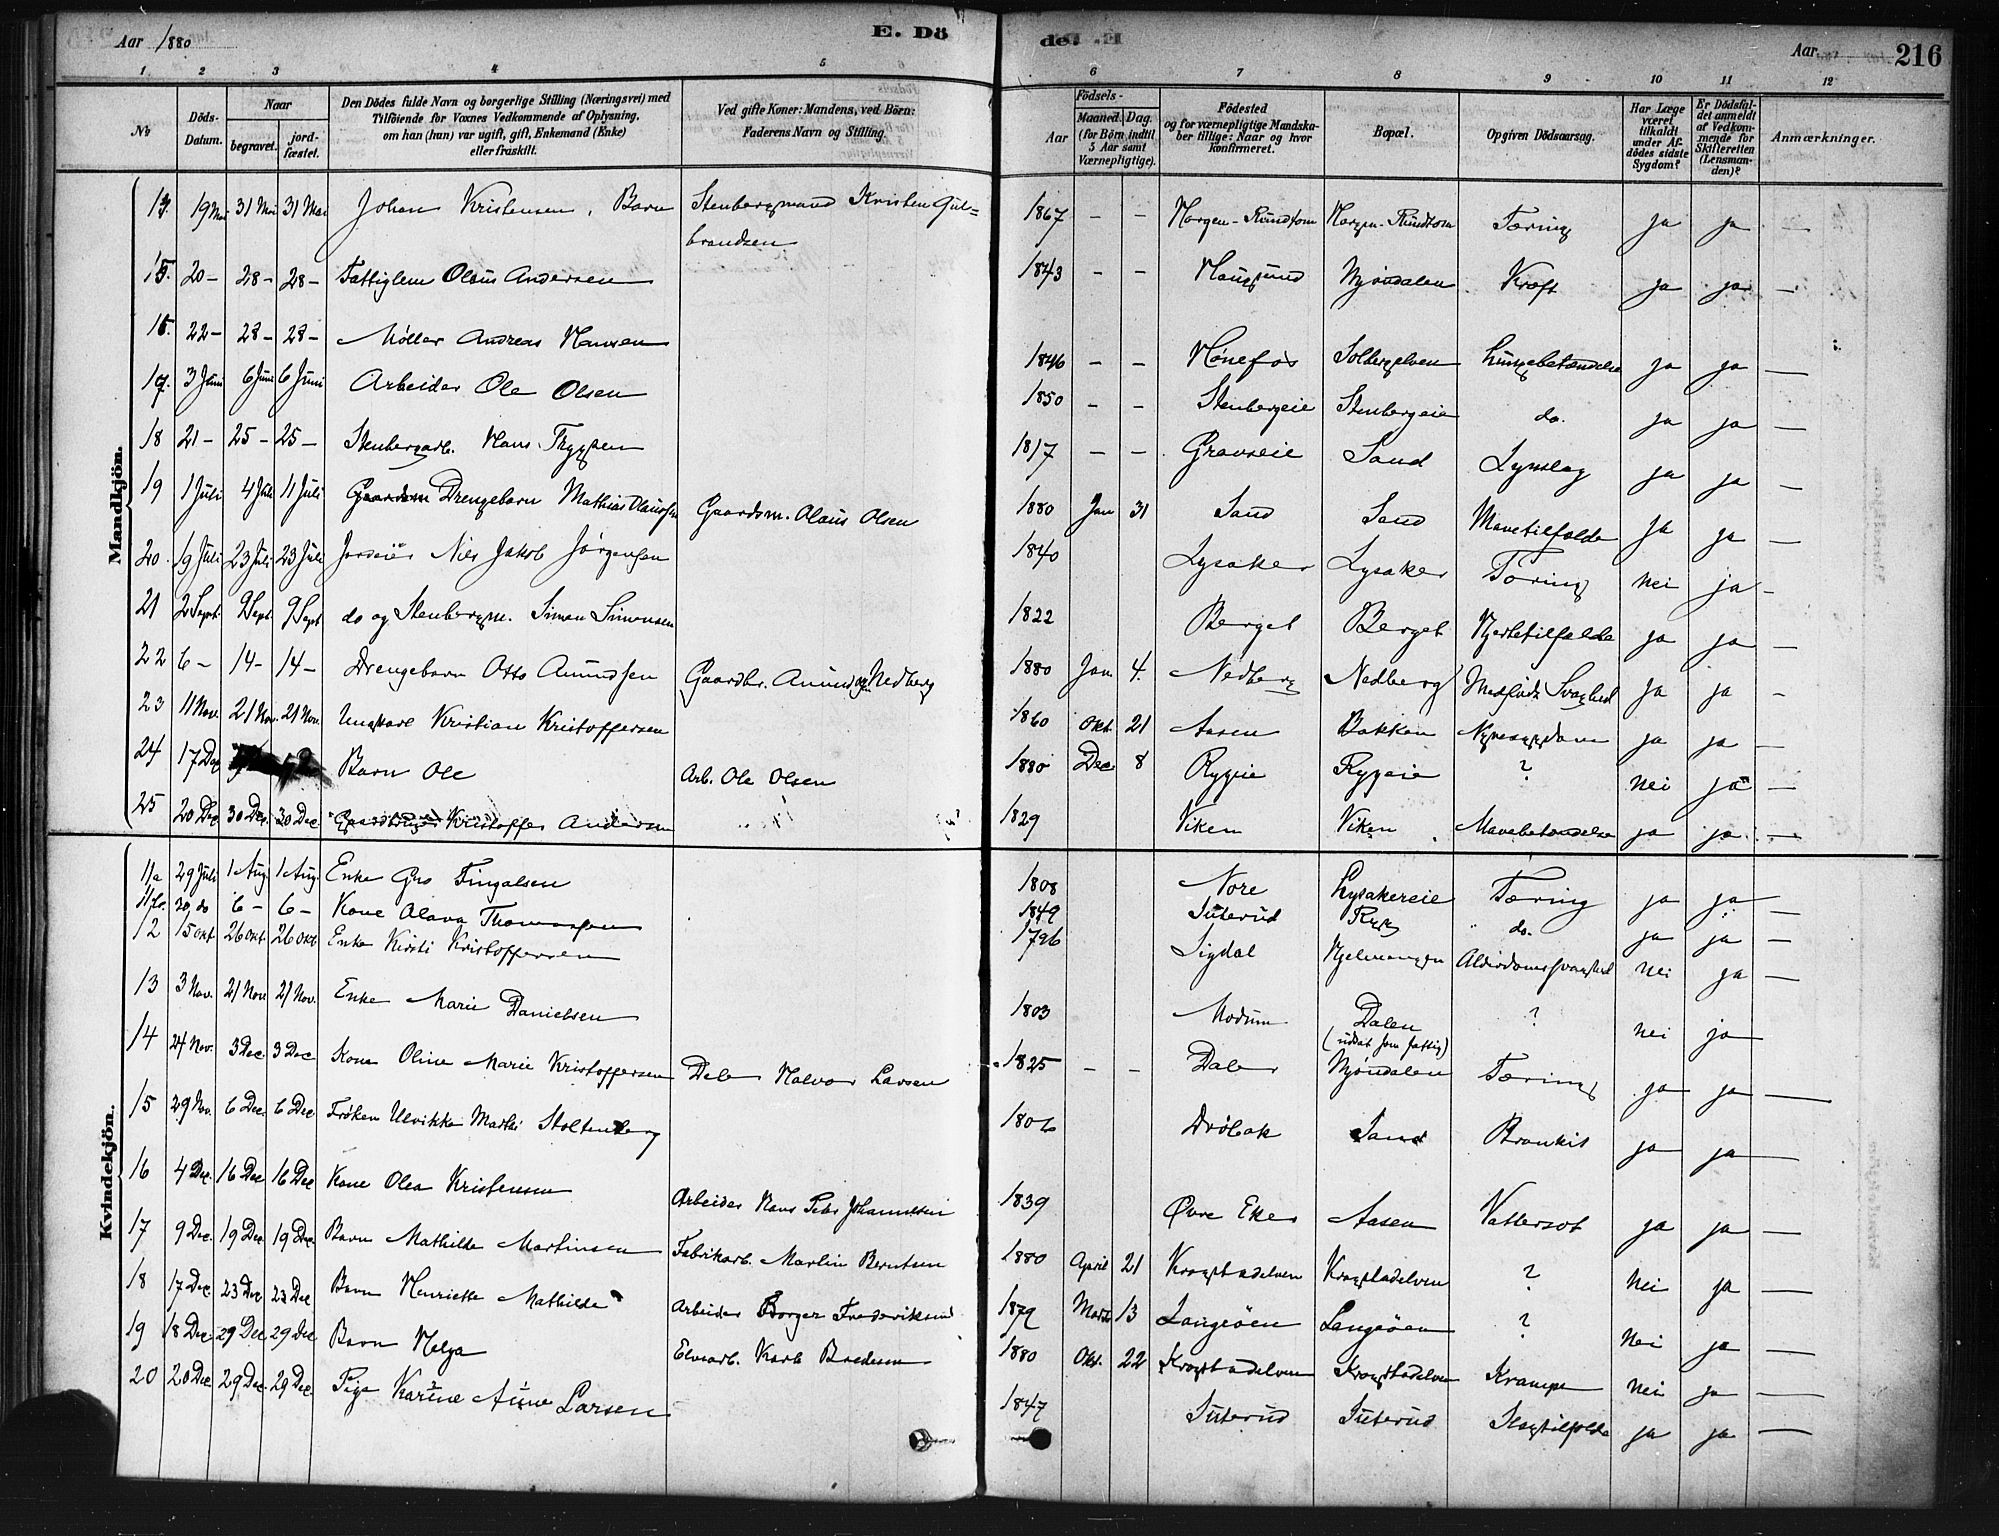 Aar 1880 E. Dö de. Aar 216
1. 2 3 4 5 6 7 8 9 10 11 12
No Döds-Datum. Naar begravet. jordfæstet. Den Dödes fulde Navn og borgerlige Stilling (Næringsvei) med Tilföiende for Voxnes Vedkommende af Oplysning, om han (hun) var ugift, gift, Enkemand (Enke) eller fraskilt. Ved gifte Koner: Mandens, ved Börn: Faderens Navn og Stilling. Födsels- Aar Maaned. Dag. (for Börn indtil 5 Aar samt Værnepligtige). Födested og for værnepligtige Mandskaber tillige: Naar og hvor konfirmeret. Bopæl. Opgiven Dödsaarsag. Har Læge været tilkaldt under Afdödes sidste Sygdom? Er Dödsfaldet anmeldt af Vedkommende for Skifteretten (Lensmanden)? Anmærkninger.
Mandkjön.
19 Mai 31 Mai 31 Mai Johan Kristensen, Barn Stenbergmand Kristen Gulbrandsen 1867 - - Horgen-Rundtom Horgen-Rundtom Tæring ja ja —
15. 20- 28- 28- Fattiglem Olaus Andersen 1843 - - Hougsund Mjøndalen Kræft ja ja —
16. 22- 28- 28- Møller Andreas Hansen 1846 - - Hønefos Solbergelven Lungebetændelse ja ja —
17. 3 Juni 6 Juni 6 Juni Arbeider Ole Olsen 1850 - - Stenbergeie Stenbergeie do. ja ja —
18 21- 25- 25- Stenbergarb. Hans Tryggsen 1817 - - Gravseie Sand Lynslag ja ja —
19 1 Juli 4 Juli 11 Juli Gaardsm Drengebarn Mathias Olaussen Gaardsm. Olaus Olsen 1880 Jan 31 Sand Sand Mavetilfælde ja ja —
20. 19 Juli 23 Juli 23 Juli Jordeier Nils Jakob Jørgensen 1840 Lysaker Lysaker Tæring nei ja -
21 2 Sept 9 Sept 9 Sept do og Stenbergm. Simen Simensen 1822 Berget Berget Hjertetilfælde ja ja —
22 6- 14- 14- Drengebarn Otto Amundsen Gaardbr. Amund Nedberg 1880 Jan 4. Nedberg Nedberg Medfødt Svaghed ja ja -
23 11 Nov. 21 Nov. 21 Nov. Ungkarl Kristian Kristoffersen 1860 Okt 21 Aasen Bakken Nyresygdom ja ja —
24 17 Dec Barn Ole Arb. Ole Olsen 1880 Dec 8 Ryggeie Ryggeie ? nei ja —
25 20 Dec 30 Dec. 30 Dec Gaardbruger Kristoffer Andersen 1829 Viken Viken Mavebetændelse ja ja —
Kvindekjön.
11a 29 Juli 1 Aug 1 Aug. Enke Gro Fingalsen 1808 Nore Lysakereie Tæring ja ja —
11b. 30 do 6- 6- Kone Olava Thomassen 1849 Suterud Rygg do. ja ja —
12 15 Okt 26 Okt. 26 Okt Enke Kirsti Kristoffersen 1796 Sigdal Alderdomssvaghed nei ja —
13 3 Nov. 21 Nov 21 Nov. Enke Marie Danielsen 1803 Modum Dalen (uddat som fattig) ? nei ja —
14 24 Nov. 3 Dec. 3 Dec Kone Oline Marie Kristoffersen Halvor Larsen 1825 - - Daler Mjøndalen Tæring ja ja —
15 29 Nov. 6 Dec. 6 Dec Frøken Ulrikke Marthe Stoltenberg 1806 Drøbak Sand Bronkit ja ja —
16 4 Dec. 16 Dec 16 Dec Kone Olea Kristensen Arbeider Hans Peter Johannessen 1839 Øvre Eker Aasen Vattersot ja ja —
17 9 Dec. 19 Dec 19 Dec Barn Mathilde Martinsen Fabrikarb. Martin Berntsen 1880 April 21 Krogstadelven Krogstadelven ? nei ja —
18 17 Dec 23 Dec 23 Dec Barn Henriette Mathilde Arbeider Borger Frederiksen 1879 Marts 13 Langeøen Langeøen ? nei ja —
19 18 Dec 29 Dec 29 Dec Barn Helga Elvearb. Karl Bredesen 1880 Okt. 22 Krogstadelven Krogstadelven Krampe nei ja —
20 20 Dec 29 Dec. 29 Dec Pige Karine Anne Larsen 1847 Suterud Suterud Slagtilfælde ja ja —